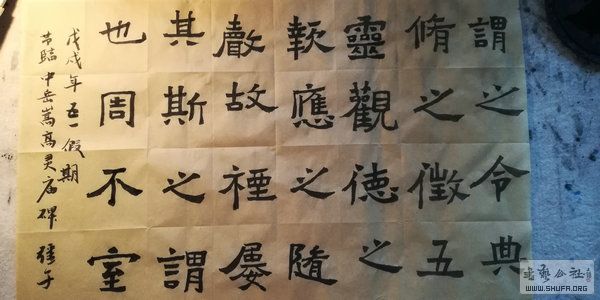 謂之令典
脩之徵五
靈觀德之
應之隨
故禋屢
其斯之謂
也周不室
戊戌年五一假期
节臨中岳嵩高灵庙碑
书艺公社
WWW.SHUFA.ORG